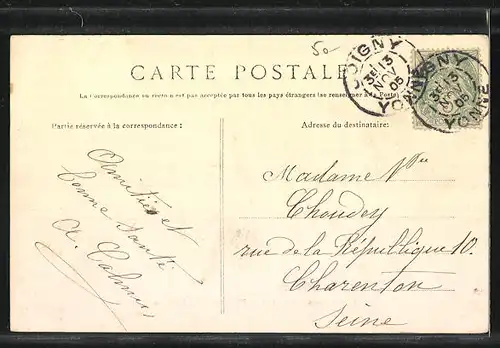 50-
JOIGNY
3E 13
NOV
05
YONNE
JOIGNY
3E 13
NOV
05
YONNE
CARTE POSTALE
La Correspondance au recto n'est pas acceptée par tous les pays étrangers (se renseigner à la Poste)
Partie réservée à la correspondance :
Adresse du destinataire:
Amitiés et
bonne santé
A.
Madame Vve
Choudey
rue de la République 10.
Charenton
Seine